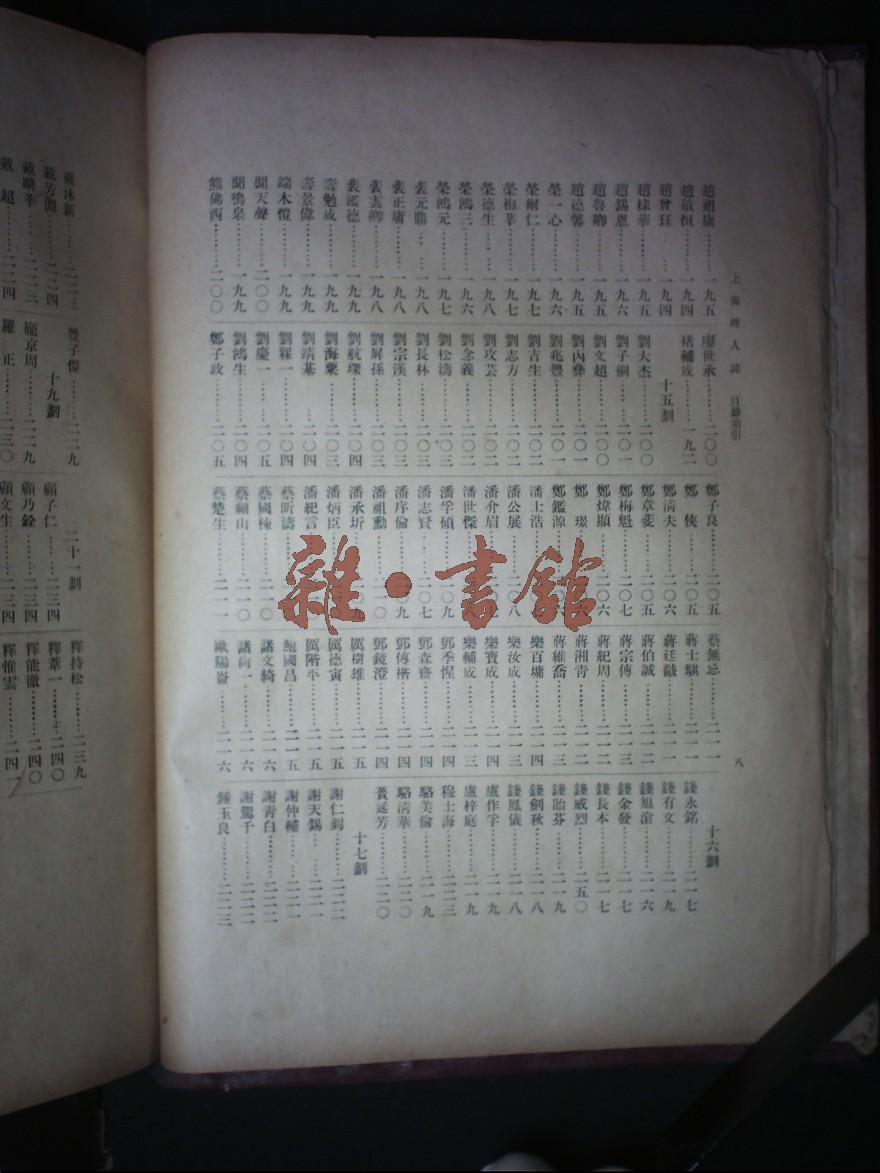 上海時人誌　目錄索引
八
趙祖康……一九五
趙敬恒……一九四
趙曾珏……一九四
趙棣華……一九五
趙錫恩……一九六
趙魯卿……一九五
趙德馨……一九五
榮一心……一九六
榮爾仁……一九七
榮梅莘……一九七
榮德生……一九八
榮鴻三……一九六
榮鴻元……一九七
裴元鼎……一九八
裴正庸……一九八
裴雲卿……一九八
裴鑑德……一九九
壽勉成……一九九
壽景偉……一九九
端木愷……一九九
聞天聲……二〇〇
聞鳴泉……一九九
熊佛西……二〇〇
廖世承……二〇〇
褚輔成……一九二
十五劃
劉大杰……二〇〇
劉子嗣……二〇一
劉文超……二〇〇
劉丙彝……二〇一
劉兆豐……二〇一
劉吉生……二〇二
劉志方……二〇二
劉攻芸……二〇二
劉念義……二〇二
劉松濤……二〇二
劉長林……二〇三
劉宗漢……二〇三
劉屏孫……二〇三
劉航琛……二〇四
劉海粟……二〇三
劉靖基……二〇四
劉槑一……二〇四
劉慶一……二〇五
劉鴻生……二〇四
鄭子政……二〇五
鄭子良……二〇五
鄭俠……二〇五
鄭淸夫……二〇六
鄭章斐……二〇五
鄭梅魁……二〇七
鄭煒顯……二〇六
鄭璟
鄭鑑源
潘上浩
潘公展……二〇八
潘介眉
潘世傑
潘孚碩
潘志賢……二〇七
潘序倫……二〇九
潘祖勳
潘承圻
潘炳臣
潘紀言
蔡昕濤
蔡國棟……二一〇
蔡福山……二一〇
蔡楚生……二一一
蔡無忌……二一一
蔣士騏……二一一
蔣廷黻……二一一
蔣伯誠……二一二
蔣宗傳……二一三
蔣紀周……二一二
蔣湘青……二一二
蔣維喬……二一三
樂百墉……二一四
樂汝成……二一三
樂賓成……二一四
樂輔成……二一三
鄧季惺……二一四
鄧森齋……二一四
鄧傳楷……二一四
鄧鏡澄……二一四
厲樹雄……二一五
厲德寅……二一五
厲階平……二一五
鮑國昌……二一五
諸文綺……二一六
諸向一……二一六
歐陽崙……二一六
十六劃
錢永銘……二一七
錢有文……二一九
錢旭滄……二一六
錢金發……二一七
錢長本……二一七
錢威烈……二五〇
錢貽芬……二一九
錢劍秋……二一八
錢鳳儀……二一八
盧作孚……二一九
盧梓庭……二一九
穆士海……二二三
駱美倫……二一九
駱清華……二二〇
黃延芳……二二〇
十七劃
謝仁釗……二二二
謝天錫……二二一
謝仲輔……二二一
謝青白……二二二
謝駕千……二二二
鍾玉良……二二三
戴沐新……二二三
戴芳瀾……二二四
戴晴莘……二二三
戴超……二二四
豐子愷……二二九
十九劃
龐京周……二二九
羅正……二三〇
二十一劃
顧子仁……二三四
顧乃銓……二三四
顧文生……二三四
釋持松……二三九
釋葦一……二四〇
釋能徹……二四〇
釋惟雲……二四
雜·書館